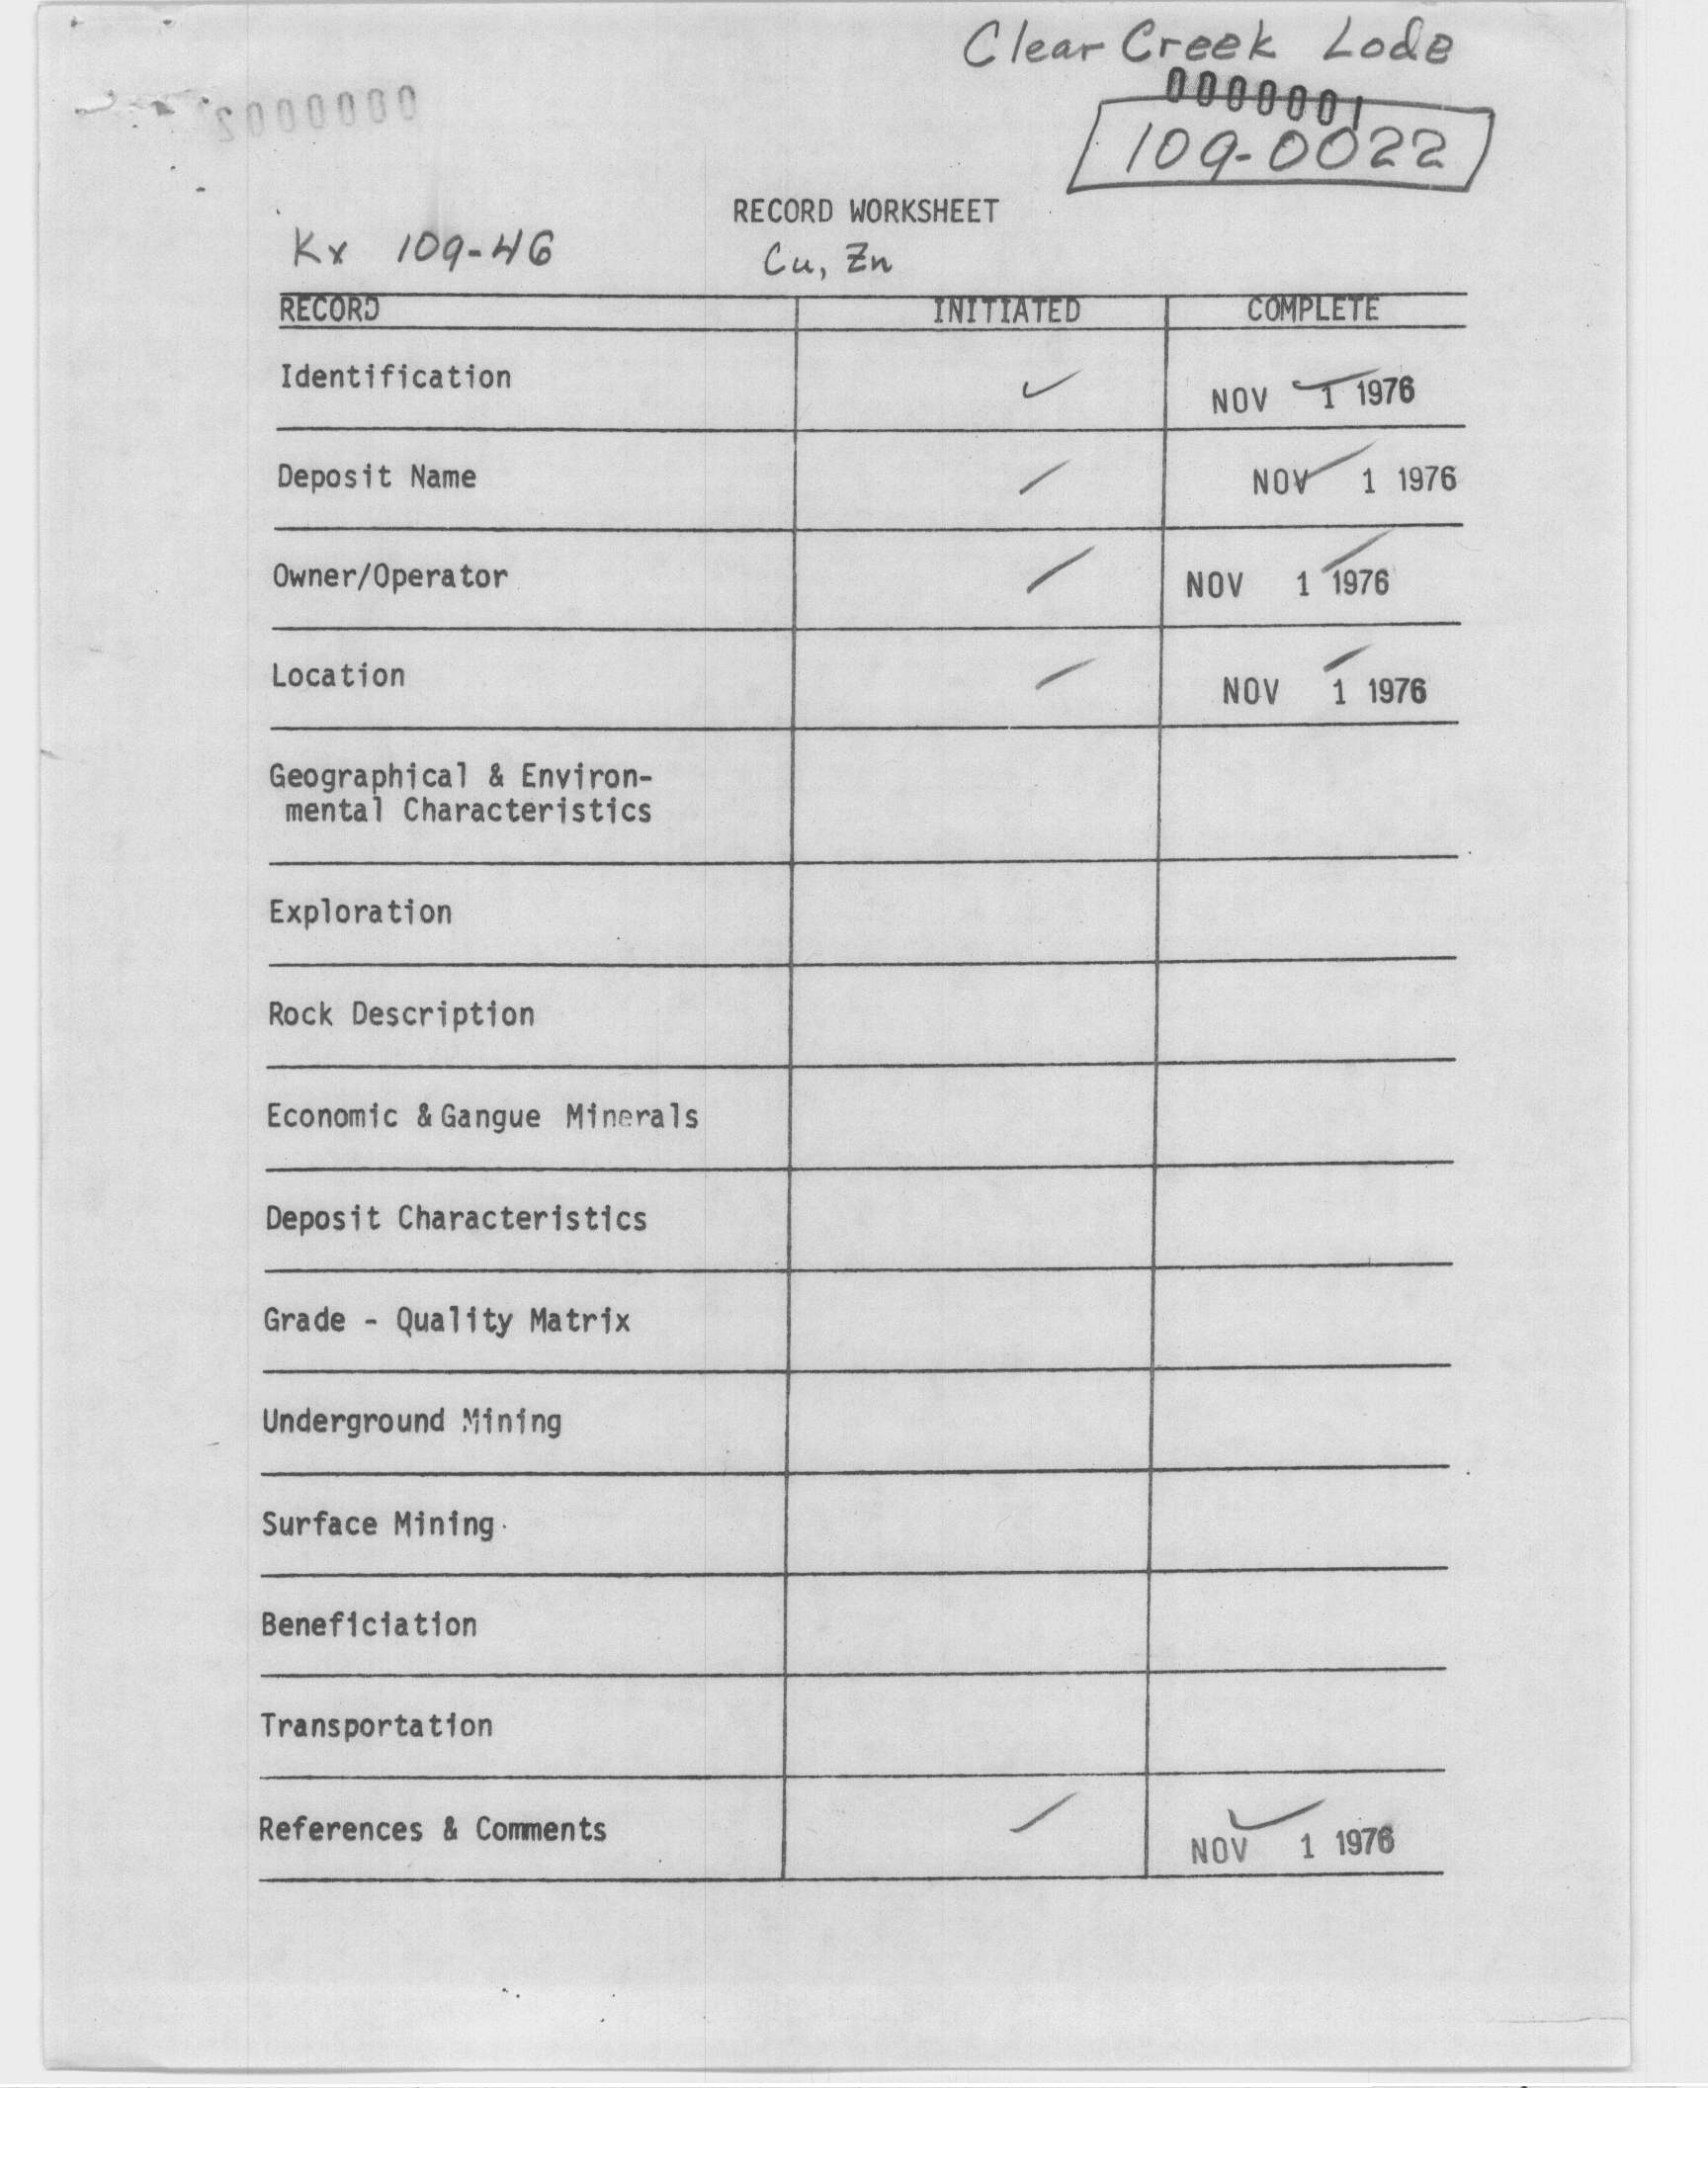 Clear Creek Lode
0000001
0000002
109-0022
RECORD WORKSHEET
Kx 109-46
Cu, Zn
RECORD INITIATED COMPLETE
Identification ✓ NOV 1 1976
Deposit Name ✓ NOV 1 1976
Owner/Operator ✓ NOV 1 1976
Location ✓ NOV 1 1976
Geographical & Environ-
mental Characteristics
Exploration
Rock Description
Economic & Gangue Minerals
Deposit Characteristics
Grade - Quality Matrix
Underground Mining
Surface Mining
Beneficiation
Transportation
References & Comments ✓ NOV 1 1976